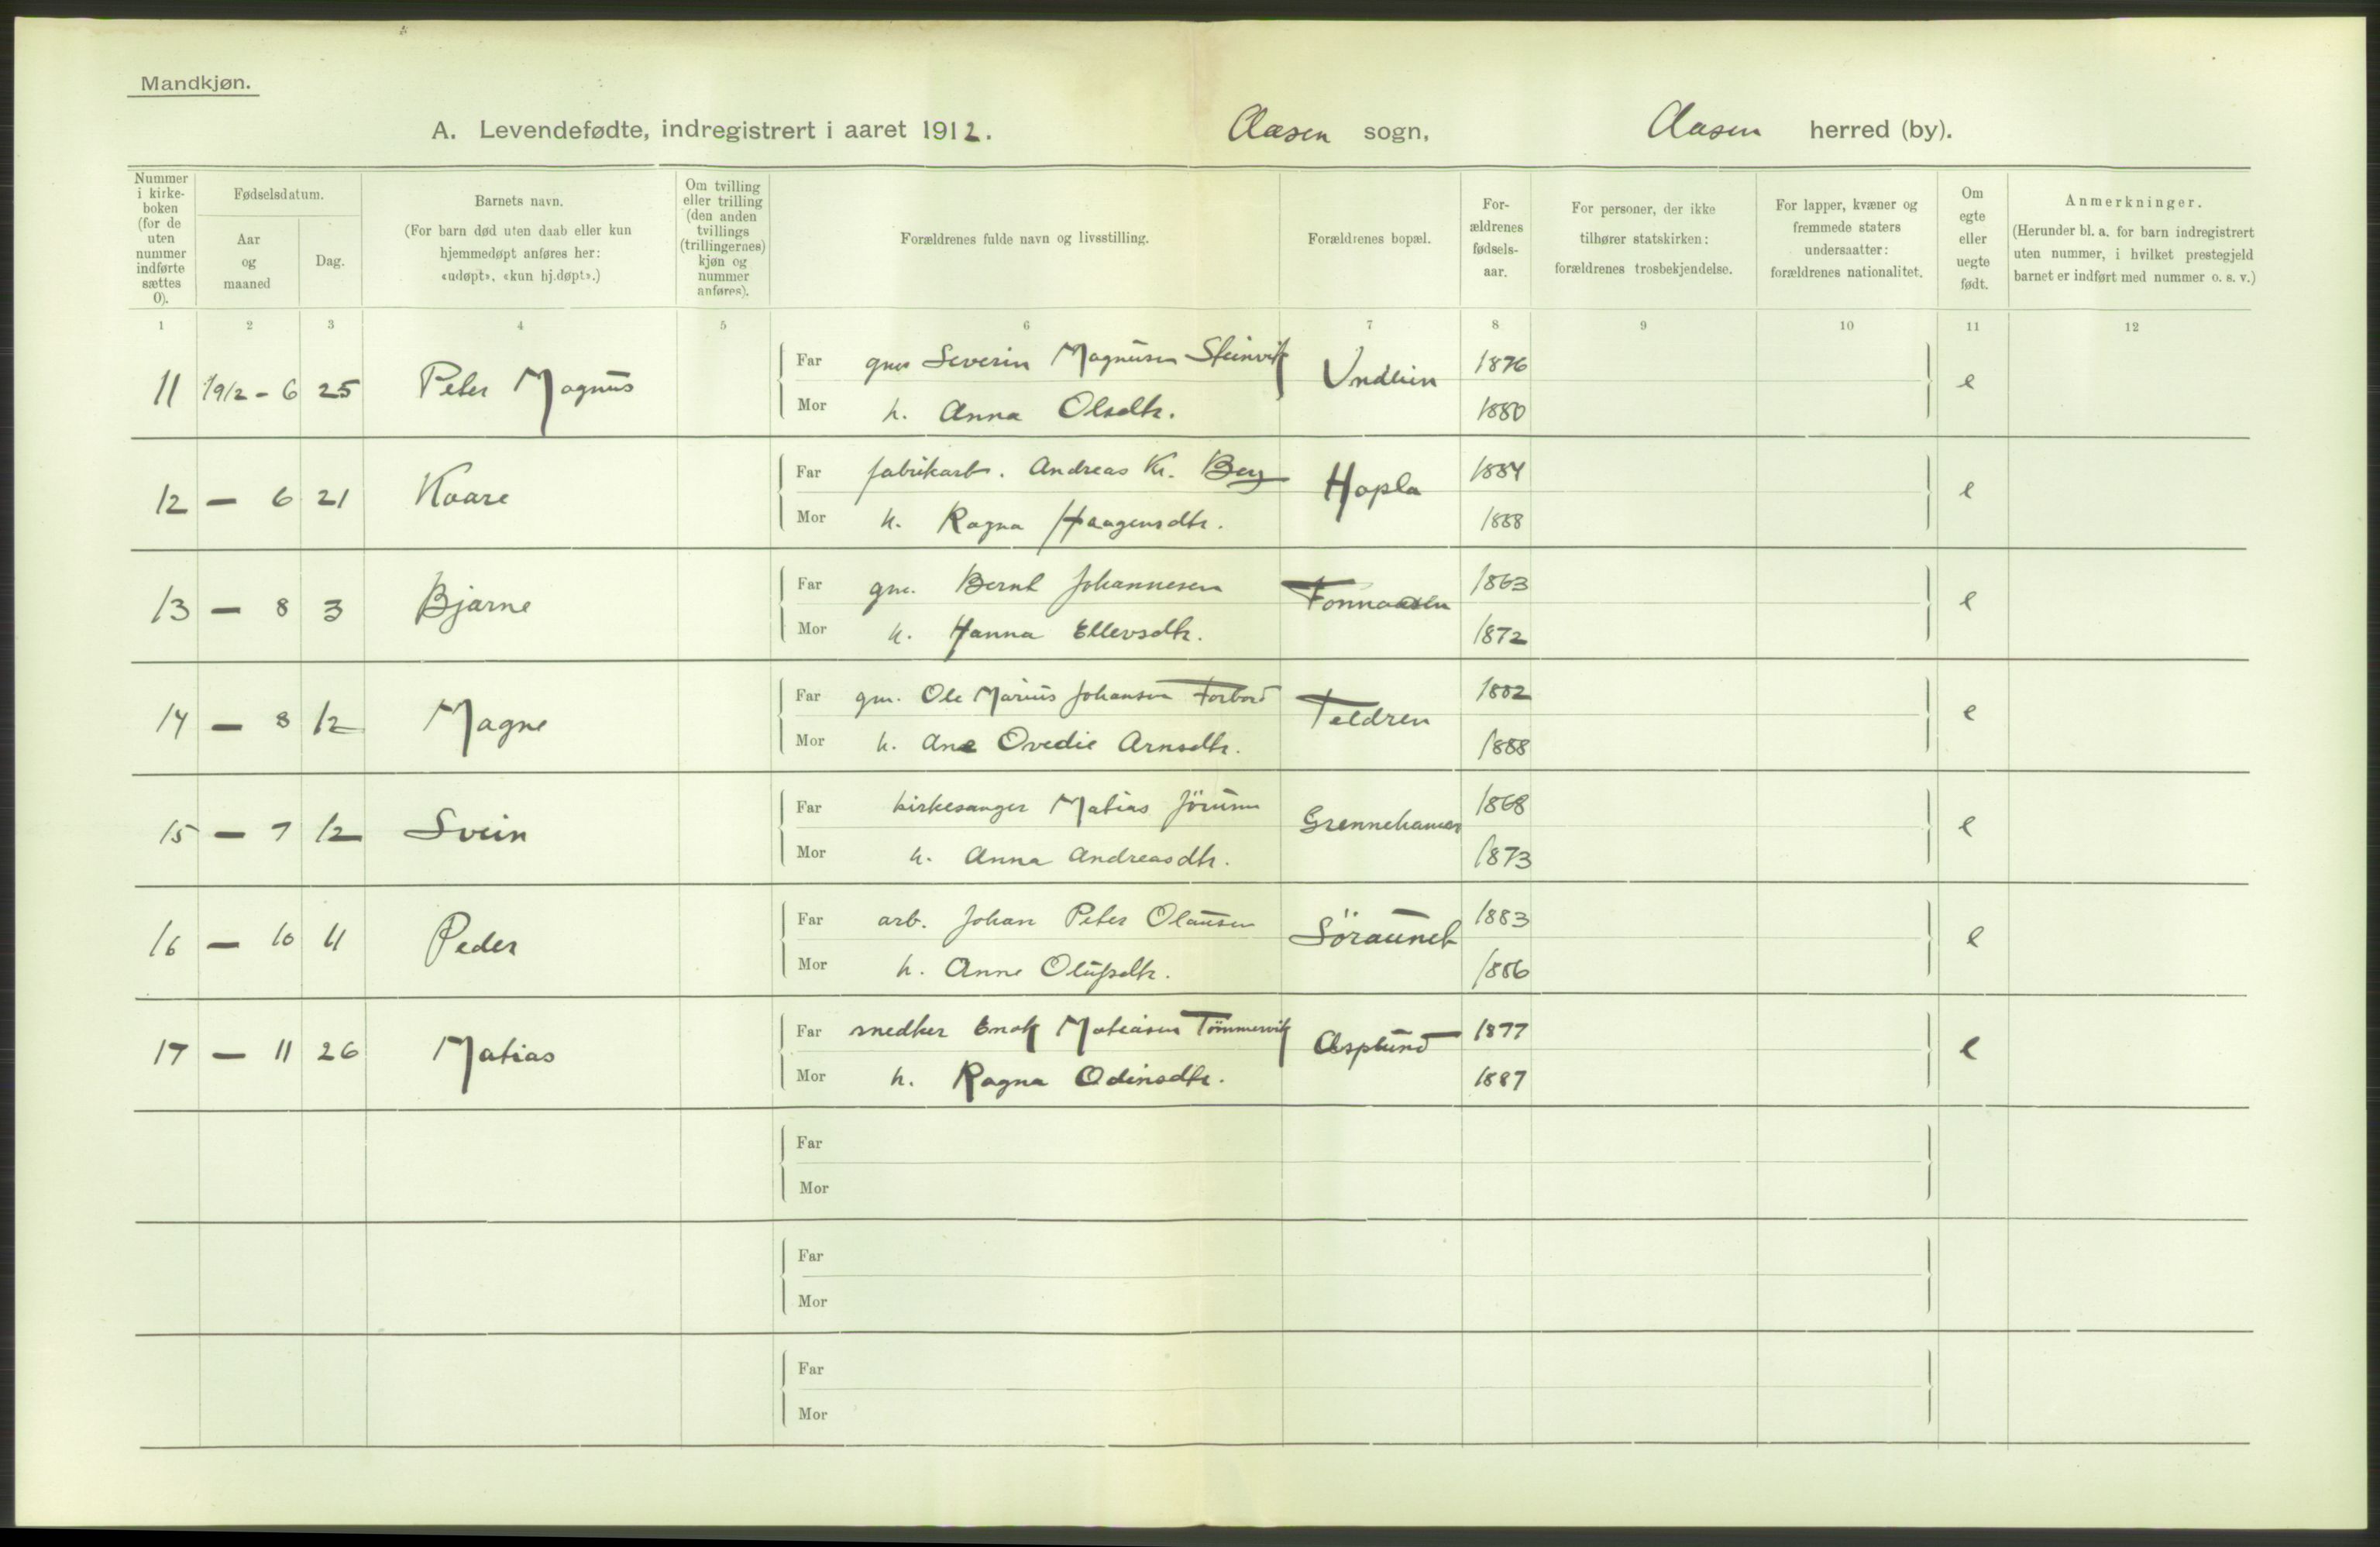 Mandkjøn.
A. Levendefødte, indregistrert i aaret 1912. Aasen sogn, Aasen herred (by).
Nummer i kirke-boken (for de uten nummer indførte sættes 0).
Fødselsdatum.
Aar og maaned
Dag.
Barnets navn.
(For barn død uten daab eller kun hjemmedøpt anføres her: «udøpt», «kun hj.døpt».)
Om tvilling eller trilling (den anden tvillings (trillingernes) kjøn og nummer anføres).
Forældrenes fulde navn og livsstilling.
Forældrenes bopæl.
For-ældrenes fødsels-aar.
For personer, der ikke tilhører statskirken: forældrenes trosbekjendelse.
For lapper, kvæner og fremmede staters undersaatter: forældrenes nationalitet.
Om egte eller uegte født.
Anmerkninger.
(Herunder bl. a. for barn indregistrert uten nummer, i hvilket prestegjeld barnet er indført med nummer o. s. v.)
1 2 3 4 5 6 7 8 9 10 11 12
Far gmr Severin Magnusen Steinvik 1876
11 1912 - 6 25 Peter Magnus Undlien e
Mor h. Anna Olsdtr. 1880
Far fabrikarb. Andreas Kr. Berg 1884
12 — 6 21 Kaare Hopla e
Mor h. Ragna Haagensdtr. 1888
Far gm. Bernt Johannesen 1863
13 — 8 3 Bjarne Fonnaasen e
Mor h. Hanna Ellevsdtr. 1872
Far gm. Ole Marius Johansen Forbord 1882
14 — 8 12 Magne Teldren e
Mor h. Ane Ovedie Arnsdtr. 1888
Far kirkesanger Matias Jörum 1868
15 — 7 12 Svein Grennehamer e
Mor h. Anna Andreasdtr. 1873
Far arb. Johan Peter Olausen 1883
16 — 10 11 Peder Söraunet e
Mor h. Anne Olufsdtr. 1886
Far snedker Enok Matiasen Tömmervik 1877
17 — 11 26 Matias Asplund e
Mor h. Ragna Odinsdtr. 1887
Far
Mor
Far
Mor
Far
Mor